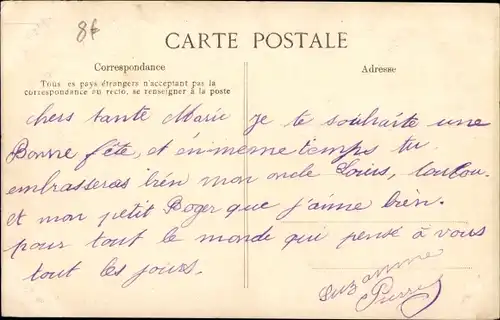 8f
CARTE POSTALE
Correspondance
Adresse
Tous les pays étrangers n'acceptant pas la
correspondance au recto, se renseigner à la poste
chers tante Marie je te souhaite une
Bonne fête, et en même temps tu
embrasseras bien mon oncle Louis, loulou.
et mon petit Roger que j'aime bien.
pour tout le monde qui pense à vous
tout les jours.
Suzanne
Pierre